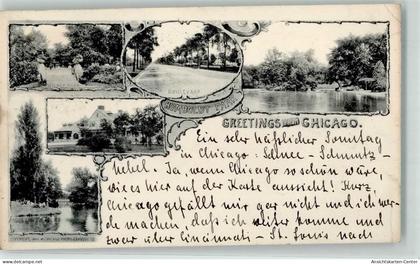 BOULEVARD
HUMBOLDT PARK
GREETINGS FROM CHICAGO.
Ein sehr häßlicher Sonntag
in Chicago: Schnee - Schmutz -
Nebel. Ja, wenn Chicago so schön wäre,
wie es hier auf der Karte aussieht! Kurz,
Chicago gefällt mir gar nicht und ich wer-
de machen, daß ich weiter komme und
zwar über Cincinnati - St. Louis nach
Ansichtskarten-Center